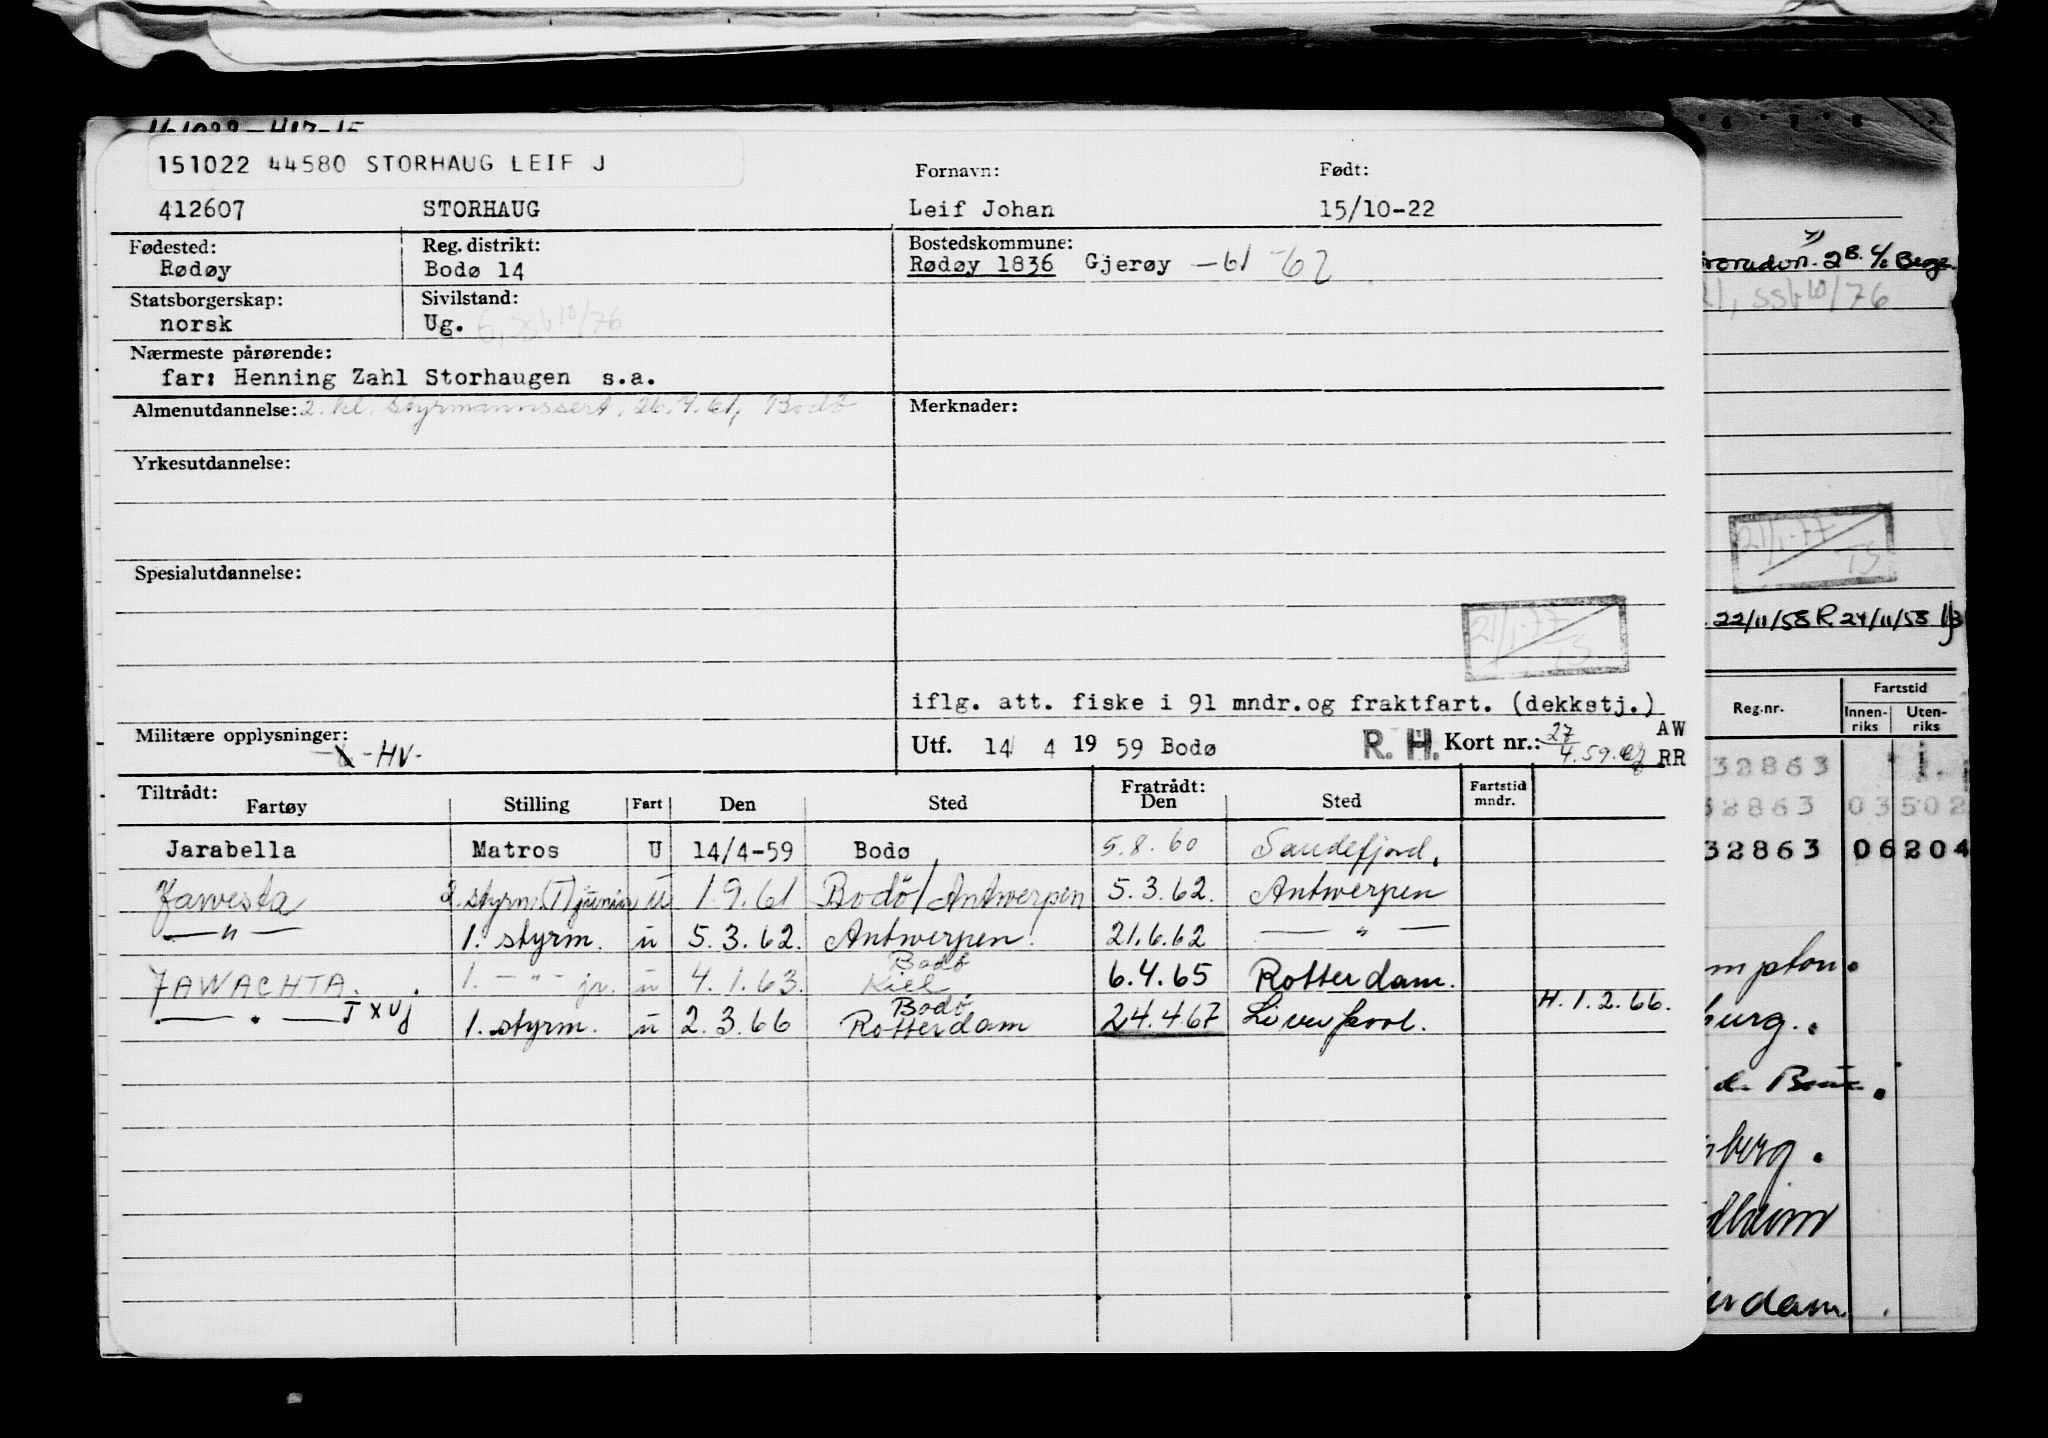 151022 44580 STORHAUG LEIF J
Fornavn: Født:
412607 STORHAUG Leif Johan 15/10-22
Fødested: Reg. distrikt: Bostedskommune:
Rødøy Bodø 14 Rødøy 1836 Gjerøy -61 -62
Statsborgerskap: Sivilstand:
norsk Ug. G, ssb 10/76
Nærmeste pårørende:
far: Henning Zahl Storhaugen s.a.
Almenutdannelse: 2. kl. styrmannssert. 26.4.61, Bodø Merknader:
Yrkesutdannelse:
Spesialutdannelse:
21/1-77 TS
iflg. att. fiske i 91 mndr.og fraktfart. (dekkstj.)
Militære opplysninger: -HV-
Utf. 14 4 19 59 Bodø R.H. Kort nr.: 27/4.59. AW RR
Tiltrådt: Fratrådt:
Fartøy Stilling Fart Den Sted Den Sted Fartstid mndr.
Jarabella Matros U 14/4-59 Bodø 5.8.60 Sandefjord.
Jawesta 2. styrm.(T) junior u 1.9.61 Bodø/Antwerpen 5.3.62. Antwerpen
— " — 1. styrm. u 5.3.62. Antwerpen. 21.6.62 — " —
JAWACHTA. 1. - " - jr. u 4.1.63. Bodø Kiel 6.4.65 Rotterdam.
— " — JXUJ 1. styrm. u 2.3.66 Bodø Rotterdam 24.4.67 Liverpool. H. 1.2.66.
2B. c/o Berge
ssb 10/76
21/1-77 TS
22/11/58 R 24/11/58
Reg.nr. Fartstid
Innen-riks Uten-riks
32863 1.
32863 03 502
32863 06 204
mpton.
burg.
berg.
dheim
erdam.